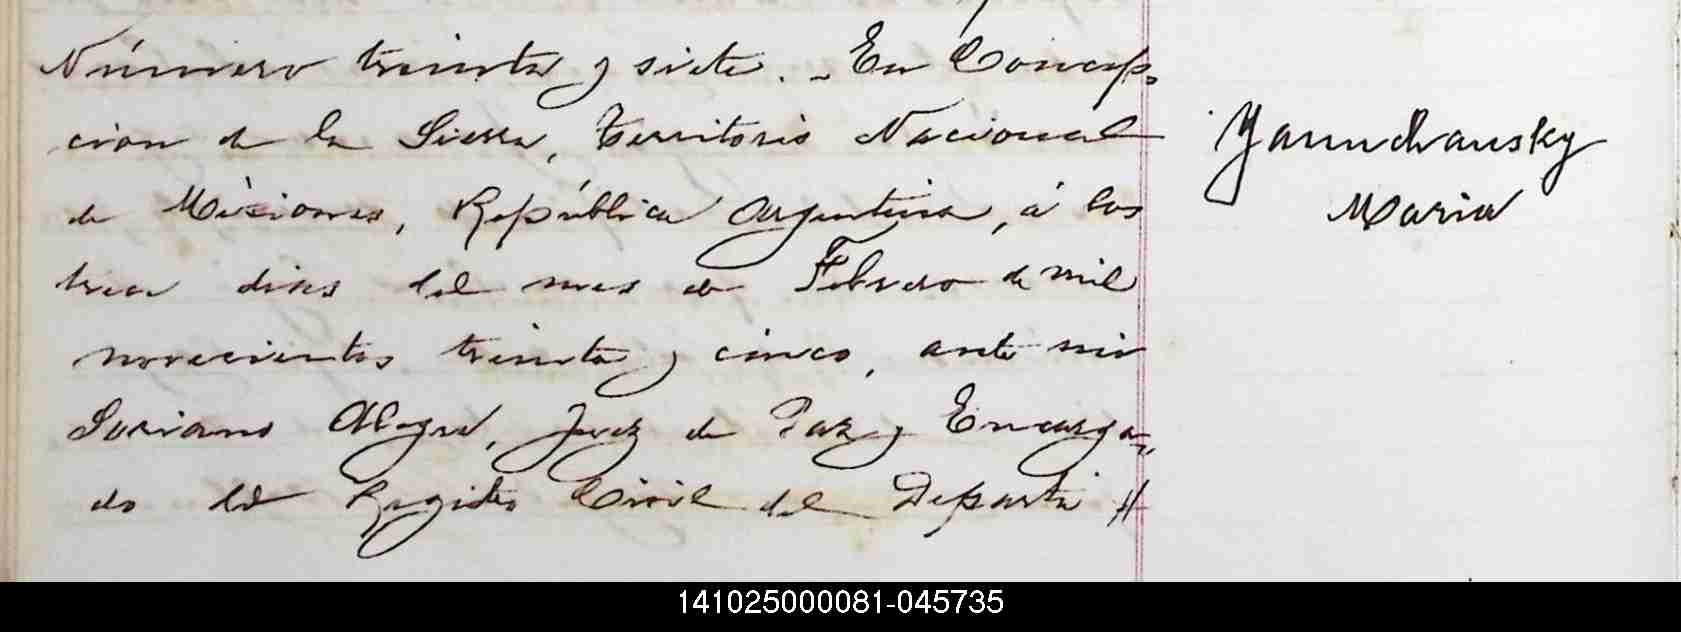 Número treinta y siete. - En Concep-
cion de la Sierra, Territorio Nacional
de Misiones, República Argentina, á los
trece dias del mes de Febrero de mil
novecientos treinta y cinco, ante mi
Soriano Alegre, Juez de Paz y Encarga-
do del Registro Civil del Departa //
Yanuchausky
Maria
141025000081-045735